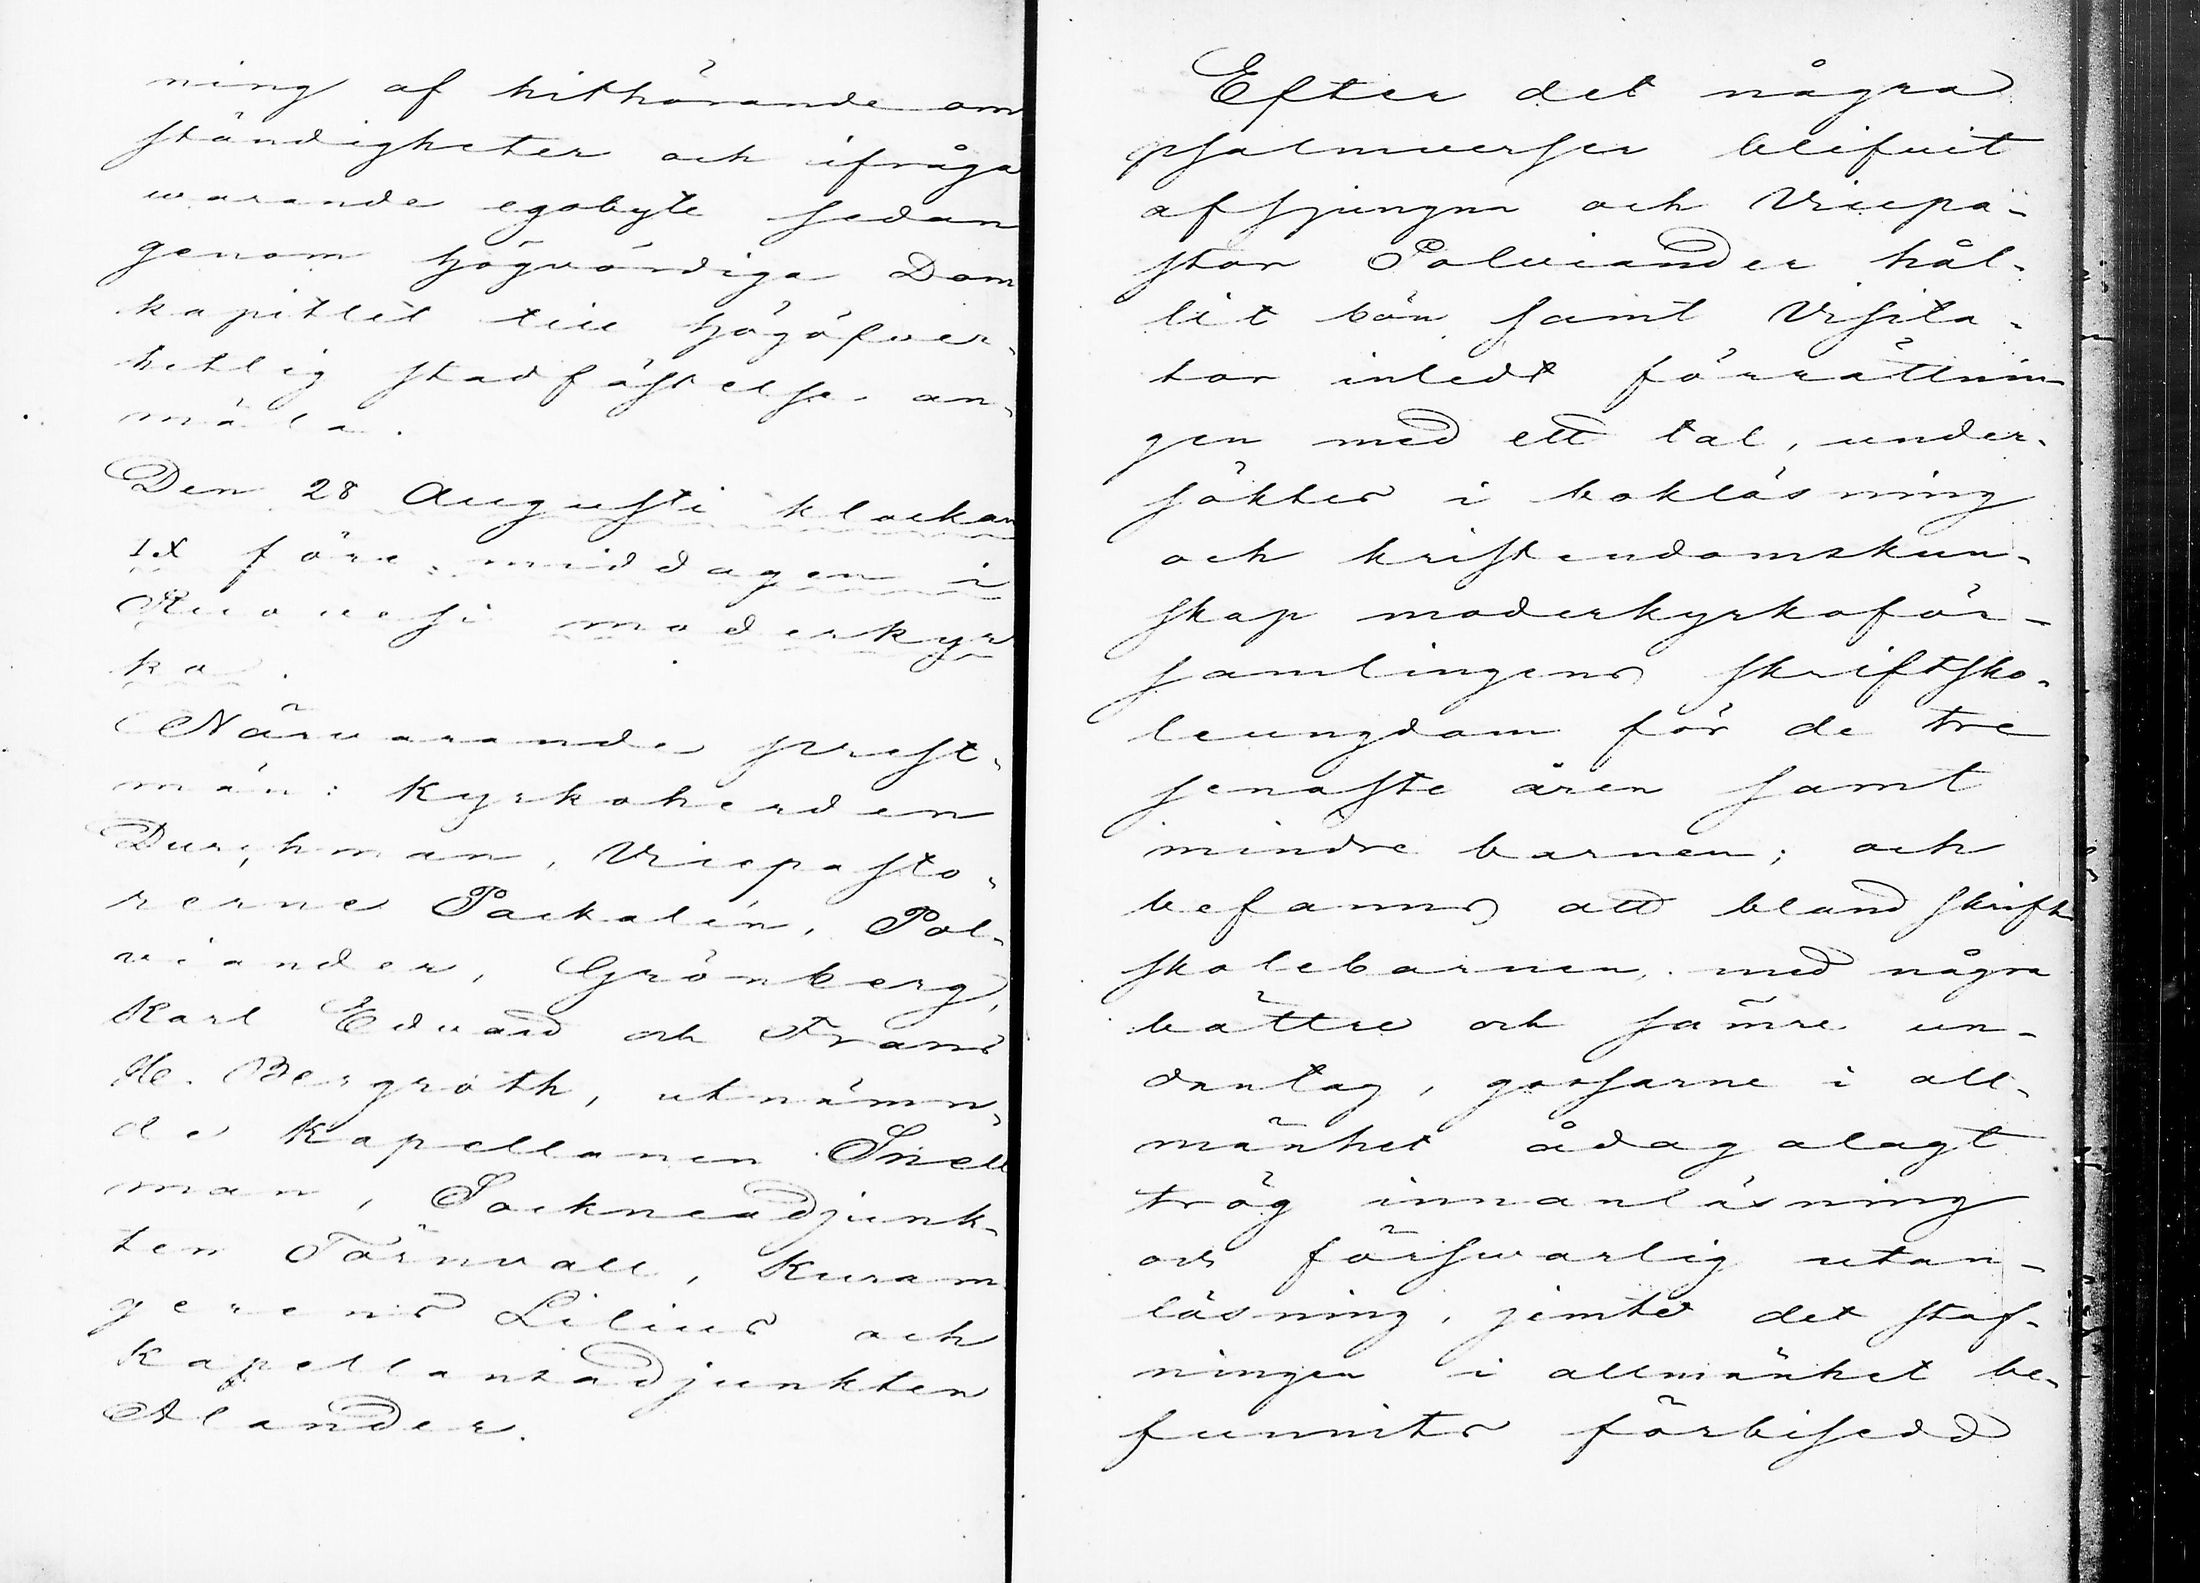 ning af hithörande om
ständigheter och ifråga
warande egobyte sedan
genom högvördiga Dom
kapitlet till högöfver-
hetlig stadfästelse an-
mäla.
Den 28 Augusti klockan
IX före middagen i
Ruovesi moderkyr
ka.
Närvarande prest-
män: Kyrkoherden
Durchman, Vicepasto-
rerne Packalén, Pol-
viander, Grönberg,
Karl Edvard och Frans
H. Bergroth, utnämn-
de Kapellanen Snell
man, Sockneadjunk-
ten Törnvall, Kuram
gerens Lilius och
Kapellansadjunkten
Alander.
Efter det några
psalmverser blifvit
afsjungna och Vicepa-
stor Polviander hål-
lit bön samt Visita-
tor inledt förrättnin-
gen med ett tal, under-
söktes i bokläsning
och kristendomskun-
skap moderkyrkoför-
samlingens skriftsko-
leungdom för de tre
senaste åren samt
mindre barnen; och
befanns att bland skrift
skolebarnen, med några
bättre och sämre un-
dantag, gossarne i all-
mänhet ådagalagt
trög innanläsning
och försvarlig utan-
läsning, jemte det staf-
ningen i allmänhet be-
funnits förbisedd